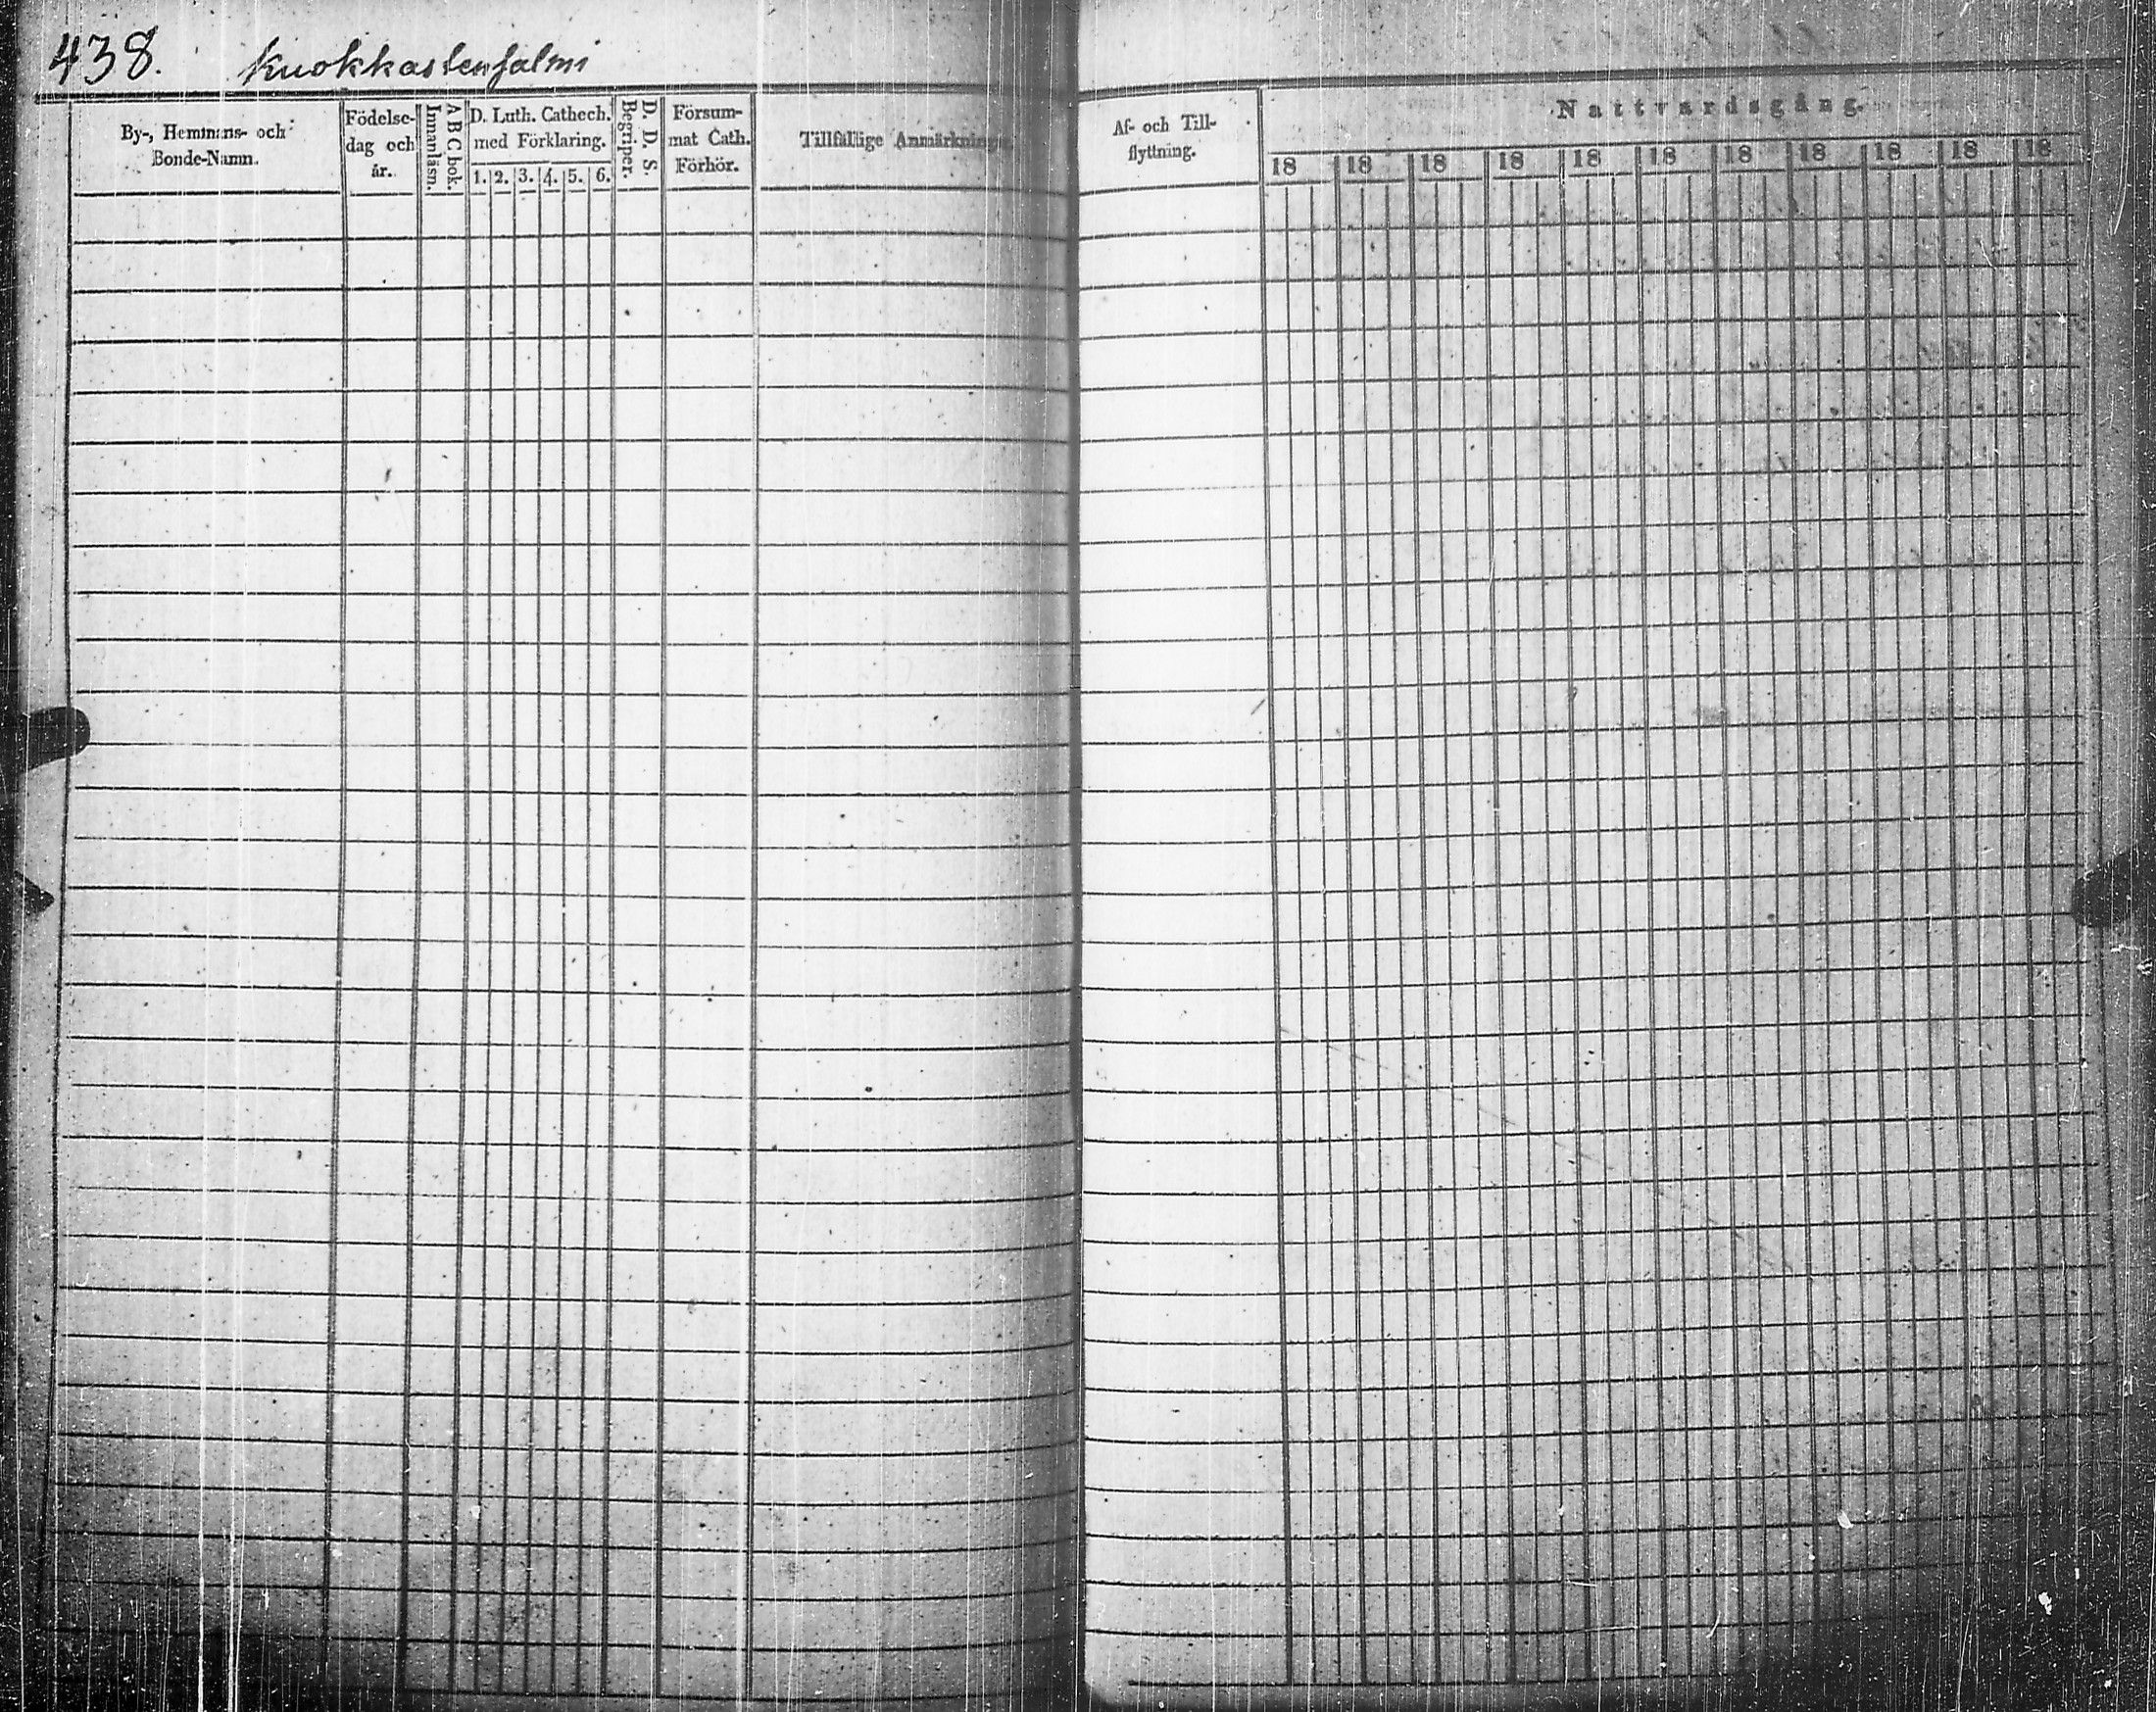 438. Kuokkastensalmi
By-, Hemmans- och
Bonde-Namn.
Födelse-
dag och
år.
A B C bok.
Innanläsn.
D. Luth. Cathech.
med Förklaring.
1. 2. 3. 4. 5. 6.
D. D. S.
Begriper.
Försum-
mat Cath.
Förhör.
Tillfällige Anmärkningar
Af- och Till-
flyttning.
Nattvardsgång.
18 18 18 18 18 18 18 18 18 18 18